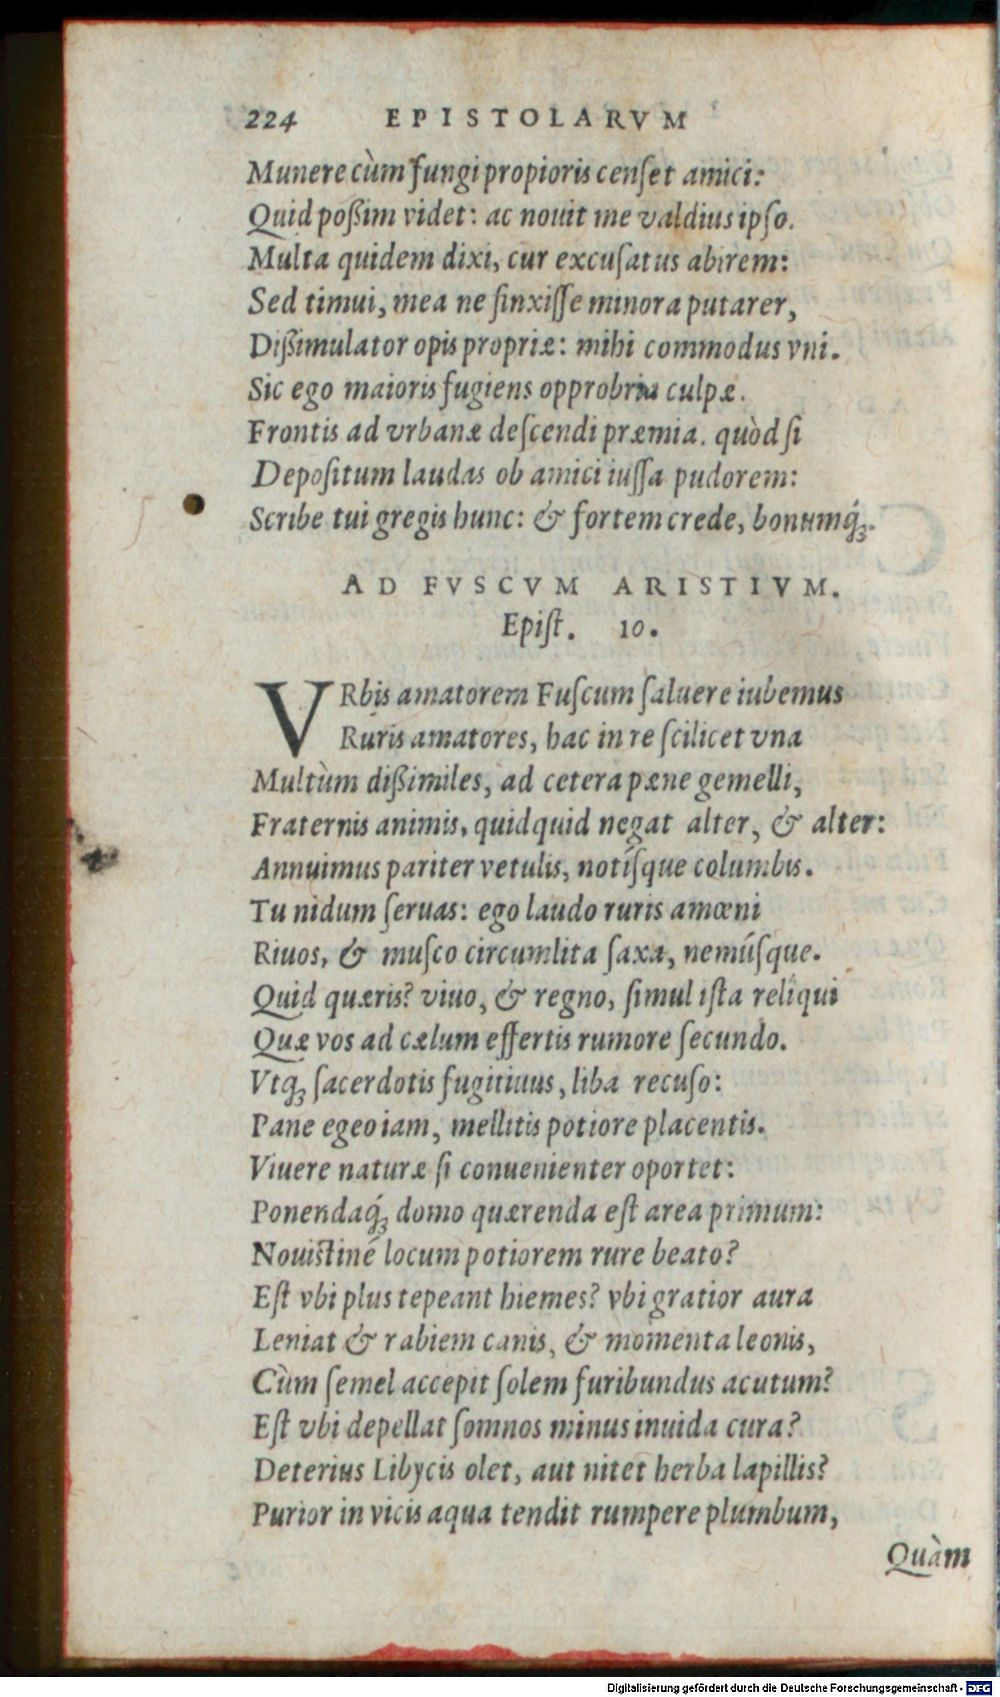 224 EPISTOLARVM
Munere cùm fungi propioris censet amici:
Quid poßim videt: ac nouit me valdius ipso.
Multa quidem dixi, cur excusatus abirem:
Sed timui, mea ne finxisse minora putarer,
Dißimulator opis propriæ: mihi commodus vni.
Sic ego maioris fugiens opprobria culpæ.
Frontis ad vrbanæ descendi præmia. quòd si
Depositum laudas ob amici iussa pudorem:
Scribe tui gregis hunc: & fortem crede, bonumq́;.
AD FVSCVM ARISTIVM.
Epist. 10.
VRbis amatorem Fuscum saluere iubemus
Ruris amatores, hac in re scilicet vna
Multùm dißimiles, ad cetera pæne gemelli,
Fraternis animis, quidquid negat alter, & alter:
Annuimus pariter vetulis, notísque columbis.
Tu nidum seruas: ego laudo ruris amœni
Riuos, & musco circumlita saxa, nemúsque.
Quid quæris? viuo, & regno, simul ista reliqui
Quæ vos ad cælum effertis rumore secundo.
Vtq; sacerdotis fugitiuus, liba recuso:
Pane egeo iam, mellitis potiore placentis.
Viuere naturæ si conuenienter oportet:
Ponendaq́; domo quærenda est area primum:
Nouistiné locum potiorem rure beato?
Est vbi plus tepeant hiemes? vbi gratior aura
Leniat & rabiem canis, & momenta leonis,
Cùm semel accepit solem furibundus acutum?
Est vbi depellat somnos minus inuida cura?
Deterius Libycis olet, aut nitet herba lapillis?
Purior in vicis aqua tendit rumpere plumbum,
Quàm
Digitalisierung gefördert durch die Deutsche Forschungsgemeinschaft - DFG